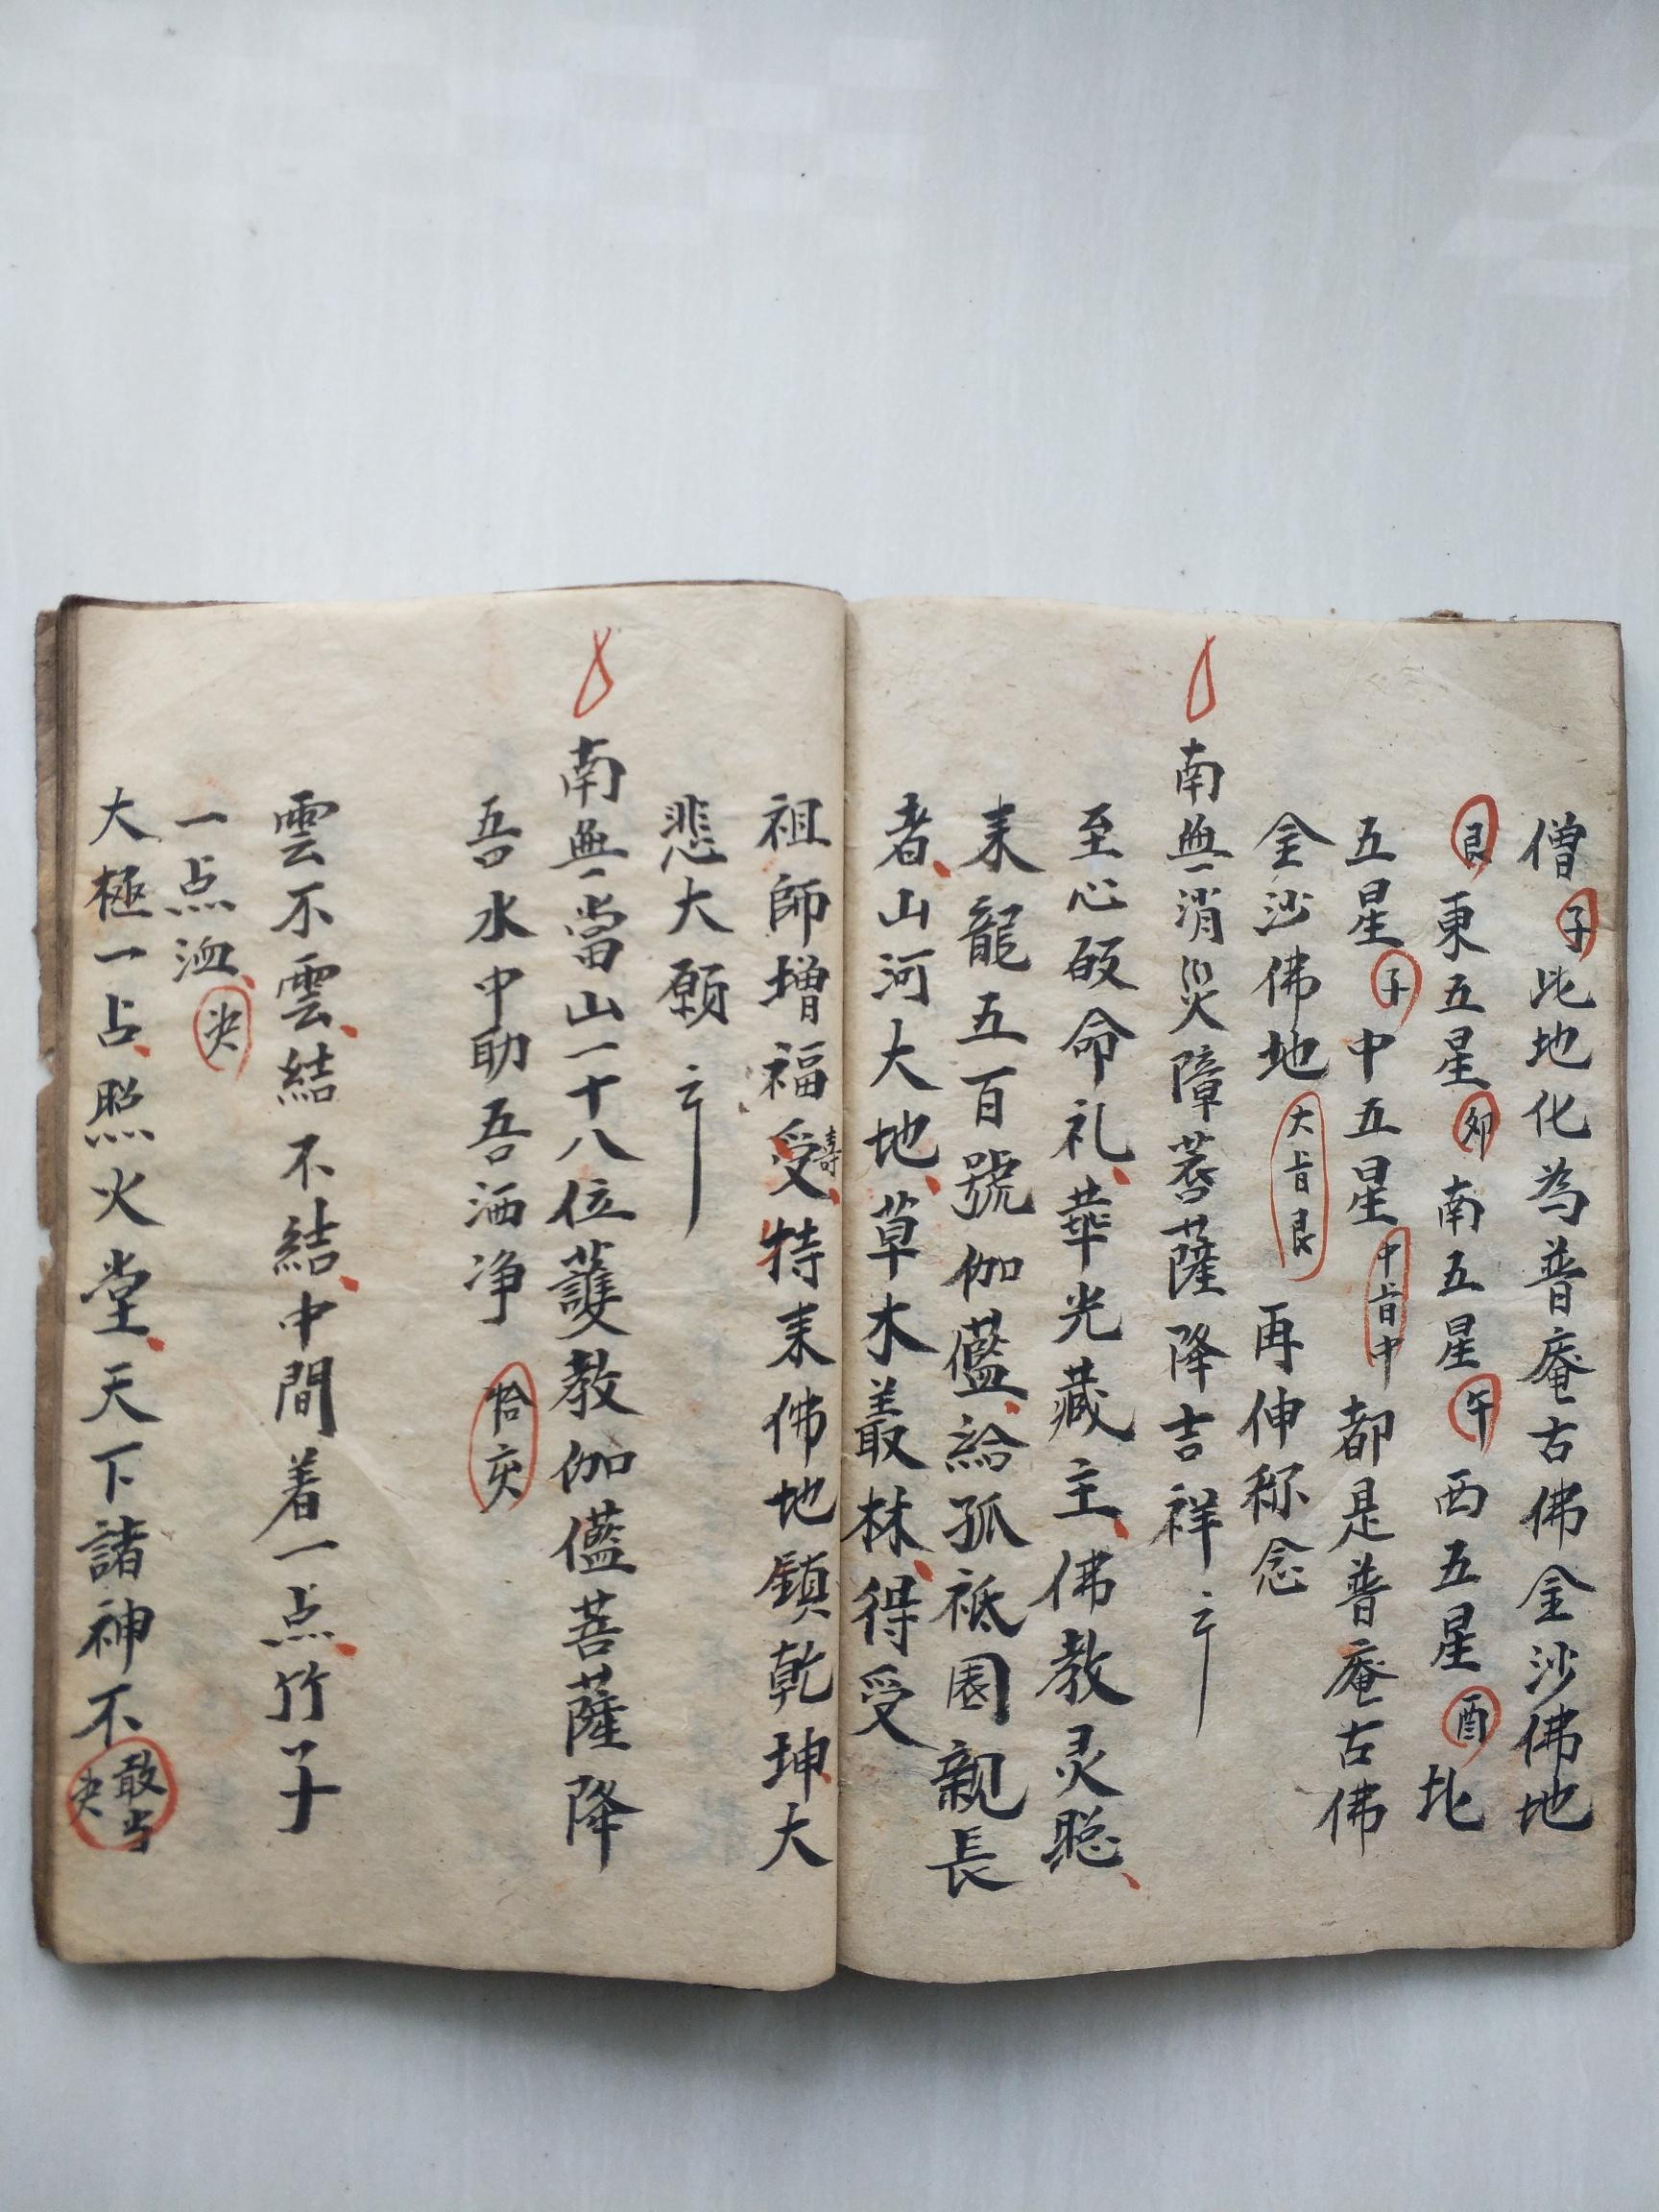 僧子此地化為普庵古佛金沙佛地
艮東五星卯南五星午西五星酉北
五星子中五星中㫖中都是普庵古佛
金沙佛地大㫖艮再伸称念
南無消災障菩薩降吉祥
至心皈命礼華光藏主佛教灵聪
来龍五百號伽儖給孤祗園親長
者山河大地草木叢林得受
祖師增福受壽特来佛地鎮乾坤大
悲大願
南無當山一十八位護教伽儖菩薩降
吾水中助吾洒净
雲不雲結不結中間着一点竹子
一点血
大極一占照火堂天下諸神不敢当